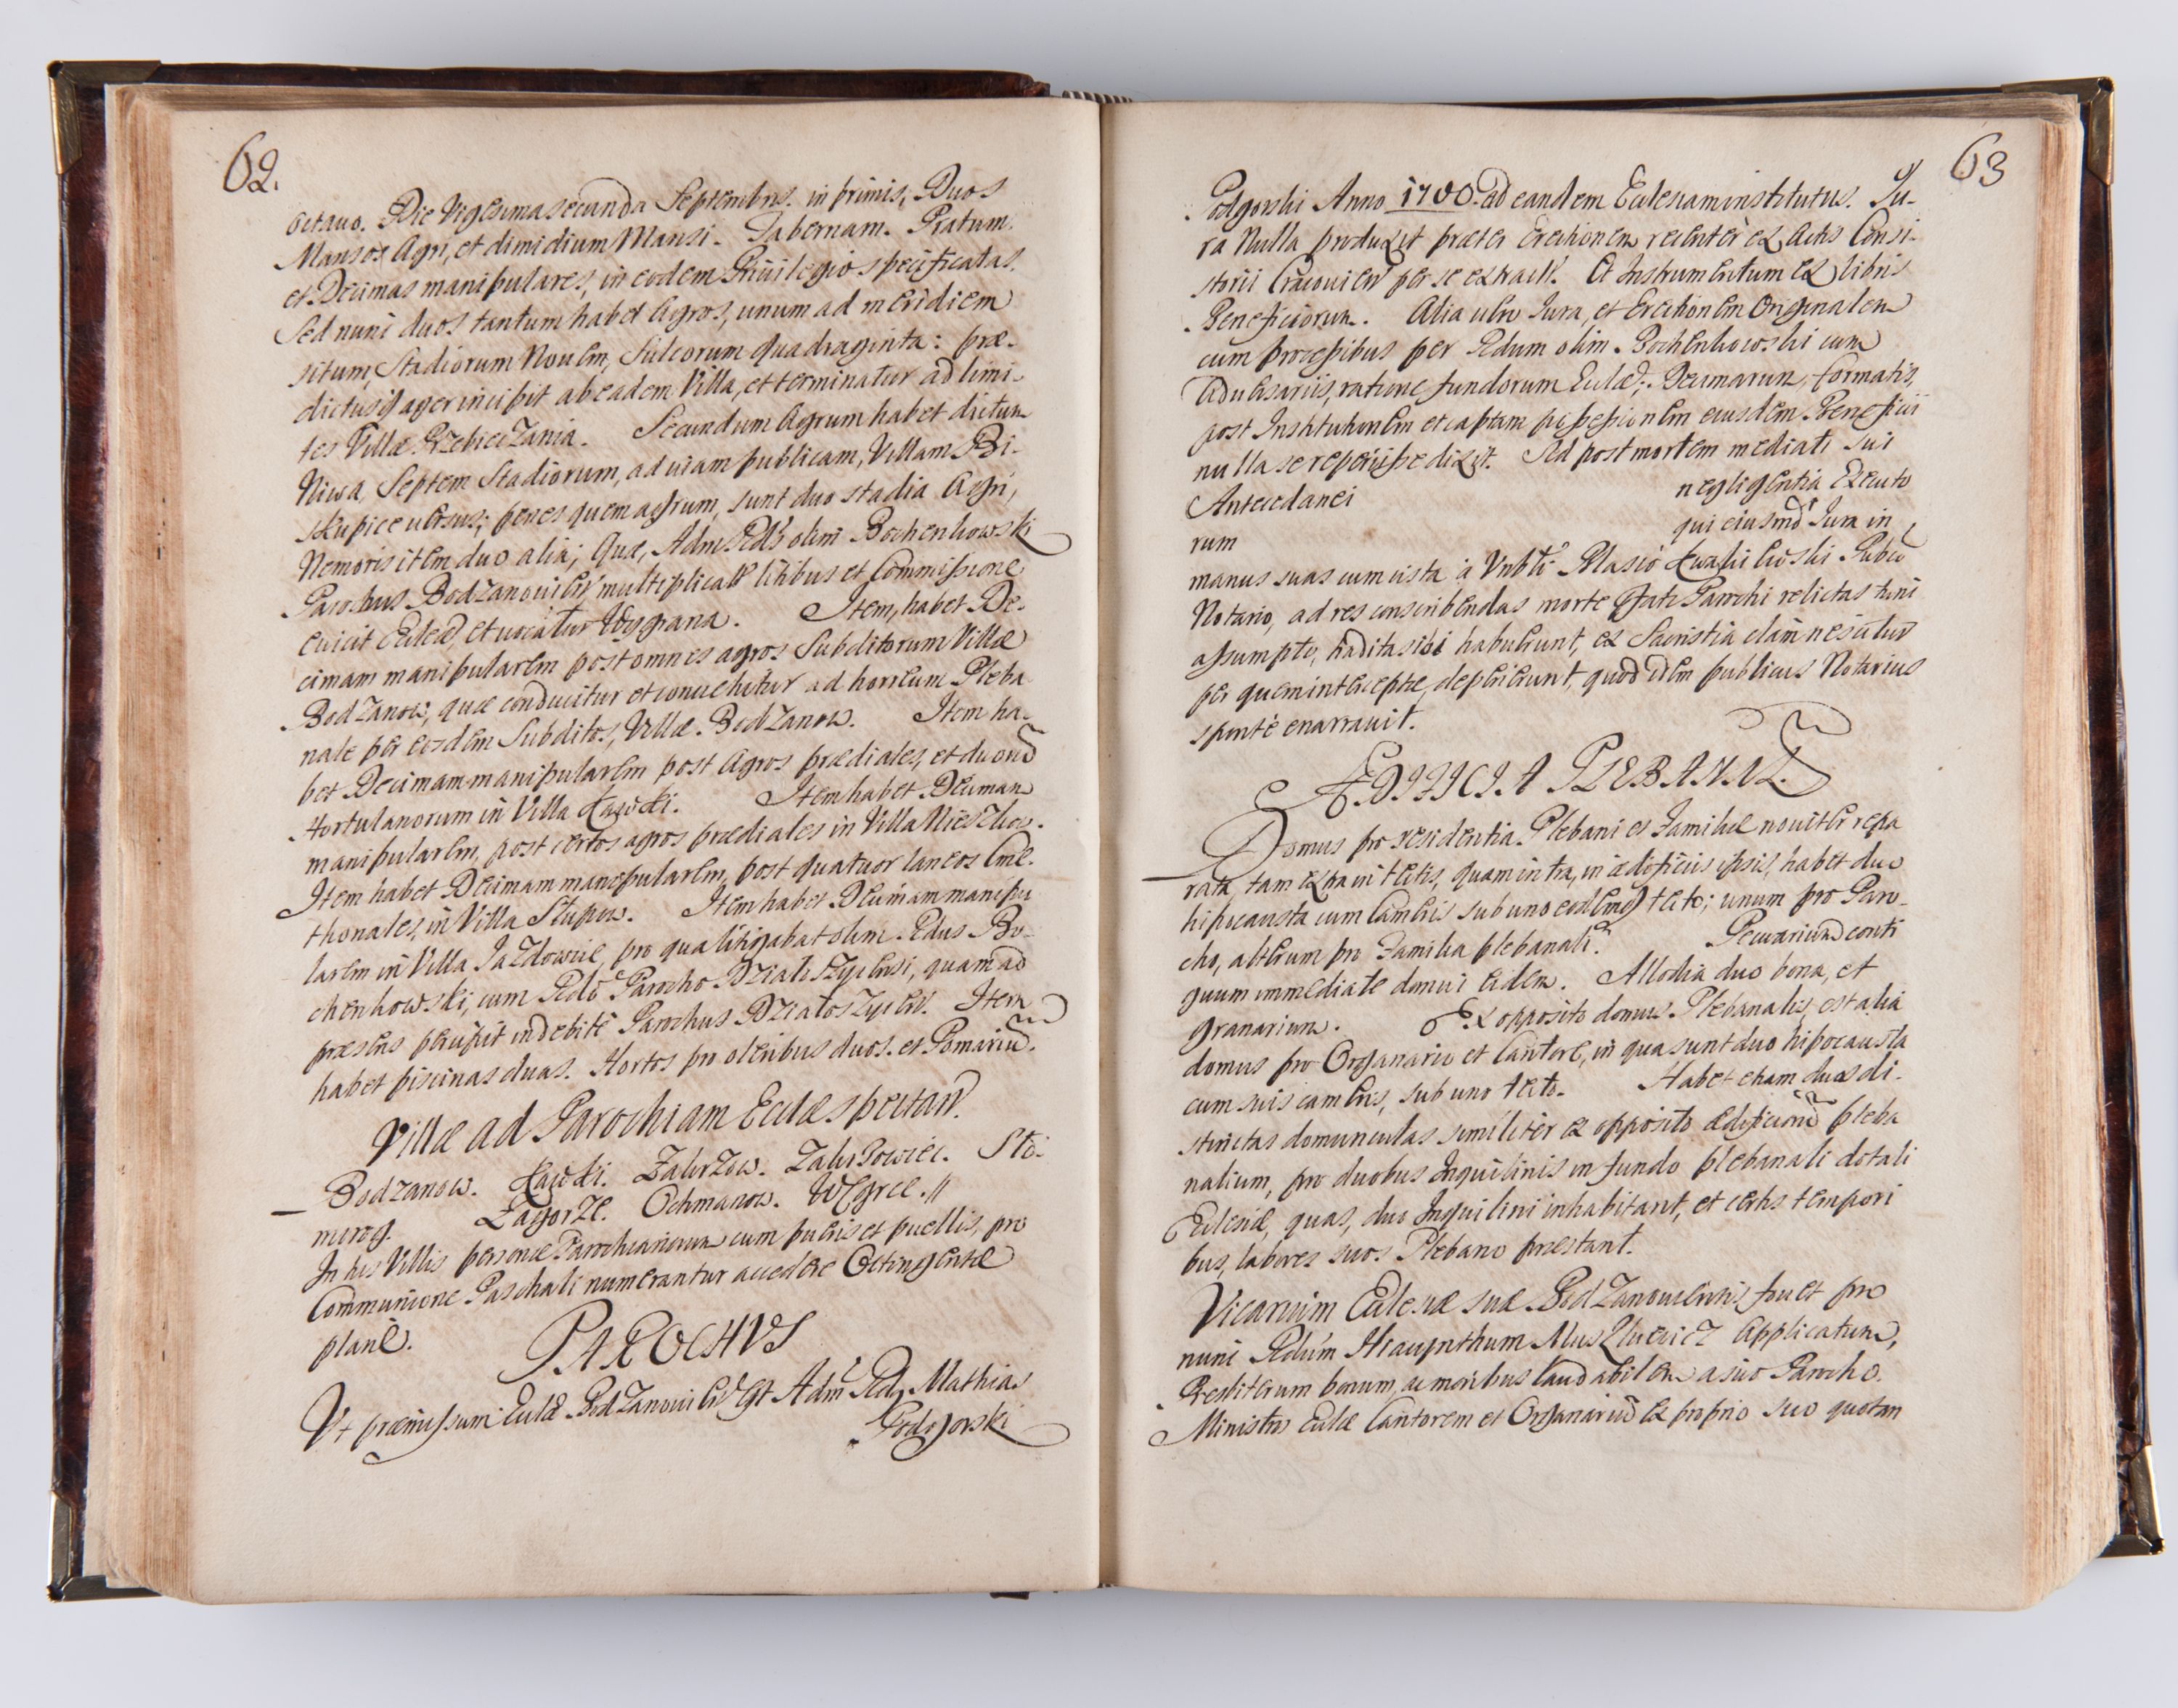 62.
octauo. Die Vigesimasecunda Septembris. in primis, Duos
Mansos Agri, et dimidium Mansi. Tabernam. Pratum.
et Decimas manipulares, in eodem Priuilegio specificatas.
Sed nunc duos tantum habet Agros, unum ad meridiem
situm, Stadiorum Nouem, Sulcorum quadraginta: præ-
dictusq ager incipit ab eadem Villa, et terminatur ad limi-
tes Villæ Przebieczania. Secundum Agrum habet dictum
Niwa, Septem Stadiorum, ad uiam publicam, Villam Bi-
skupice uersus; penes quem agrum, sunt duo stadia Agri,
Nemoris item duo alia; Quæ, Adm Rdus olim Bochenkowski
Parochus Bodzanouien multiplicatis litibus et Commissione
euicit Eccleæ, et uocatur Wygrana. Item, habet De-
cimam manipularem post omnes agros Subditorum Villæ
Bodzanow, quæ conducitur et conuehitur ad horreum Pleba
nale per eosdem Subditos, Villæ Bodzanow. Item ha-
bet Decimam manipularem post Agros prædiales, et duorū
Hortulanorum in Villa Łazuki. Item habet Decimam
manipularem, post certos agros prædiales in Villa
Item habet Decimam manipularem, post quatuor laneos Cme-
thonales, in Villa Słupow. Item habet Decimam manipu
larem in Villa Jazdowice, pro qua litigabat olim Rdus Bo-
chenkowski, cum Rdo Parocho Działoszycensi, quam ad
præsens percipit indebite Parochus Działoszycen. Item
habet piscinas duas. Hortos pro oleribus duos. et Pomariū.
Villæ ad Parochiam Ecclæ spectan.
Bodzanow. Łazuki. Zakrzow. Zakrzowiec. Sto-
niorog. Zagorze. Ochmanow. Węgrce. //
In his Villis personæ Parochianorum cum pueris et puellis, pro
Communione Paschali numerantur accedere Octingentæ
plane.
PAROCHVS
Vt præmissum Ecclæ Bodzanouien Est Adm Rdus Mathias
Podgorski
63
Podgorski Anno 1700. ad eandem Ecclesiam institutus. Ju-
ra Nulla produxit præter Erectionem recenter ex Actis Consi-
storii Cracouien per se extractā. Et Instrumentum ex libris
Beneficiorum. Alia uero Jura, et Erectionem Originalem
cum processibus per Rdum olim Bochenkowski cum
Aduersariis, ratione fundorum Eccleæ; Decimarum, formatis,
post Institutionem et captam possessionem eiusdem Beneficii
nulla se reperisse dixit. Sed post mortem mediati sui
Antecedanei negligentia Executo
rum qui eiusmodi Jura in
manus suas cum cista à Blasio Publico
Notario, ad res conscribendas morte fati Parochi relictas tunc
assumpto, tradita sibi habuerunt, ex Sacristia clam nescitur
per quem interceptæ, deperierunt, quod idem publicus Notarius
sponte enarrauit.
ÆDIFICIA PLEBANAL.
Domus pro residentia Plebani et Familiæ nouiter repa
rata, tam extra in tectis, quam intra, in ædificiis ipsis, habet duo
hipocausta cum Cameris sub uno eodemq tecto; unum pro Paro-
cho, alterum pro Familia plebanali. Pecuarium conti
guum immediate domui eidem. Allodia duo bona, et
granarium. Ex opposito domus Plebanalis, est alia
domus pro Organario et Cantore, in qua sunt duo hipocausta
cum suis cameris, sub uno tecto. Habet etiam duas di-
stinctas domunculas similiter ex opposito ædificiorū pleba
nalium, pro duobus Inquilinis in fundo plebanali dotali
Ecclesiæ, quas, duo Inquilini inhabitant, et certis tempori
bus, labores suos Plebano præstant.
Vicarium Ecclesiæ suæ Bodzanouiensis fouet pro
nunc Rdum Hiacynthum Applicatum,
Presbiterum bonum, ac moribus laudabilem a suo Parocho.
Ministros Ecclæ Cantorem et Organariū ex proprio suo quotan